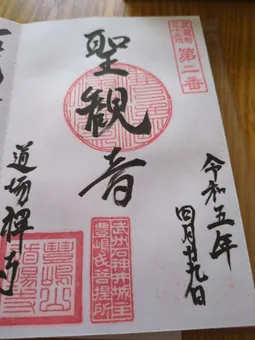 武蔵野
第二番
令和五年
四月廿九日
聖観音
武州石神井城主
豊嶋氏菩提所
道場禅寺
豊嶋山
道場寺